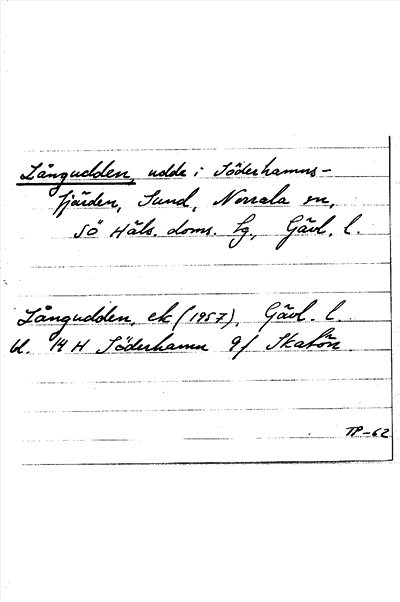 Långudden, udde i Söderhamns-
fjärden, Sund, Norrala sn,
Sö Häls. doms. lg., Gävl. l.
Långudden, ek (1957), Gävl. l.
bl. 14 H Söderhamn 9f Skatön
TP-62